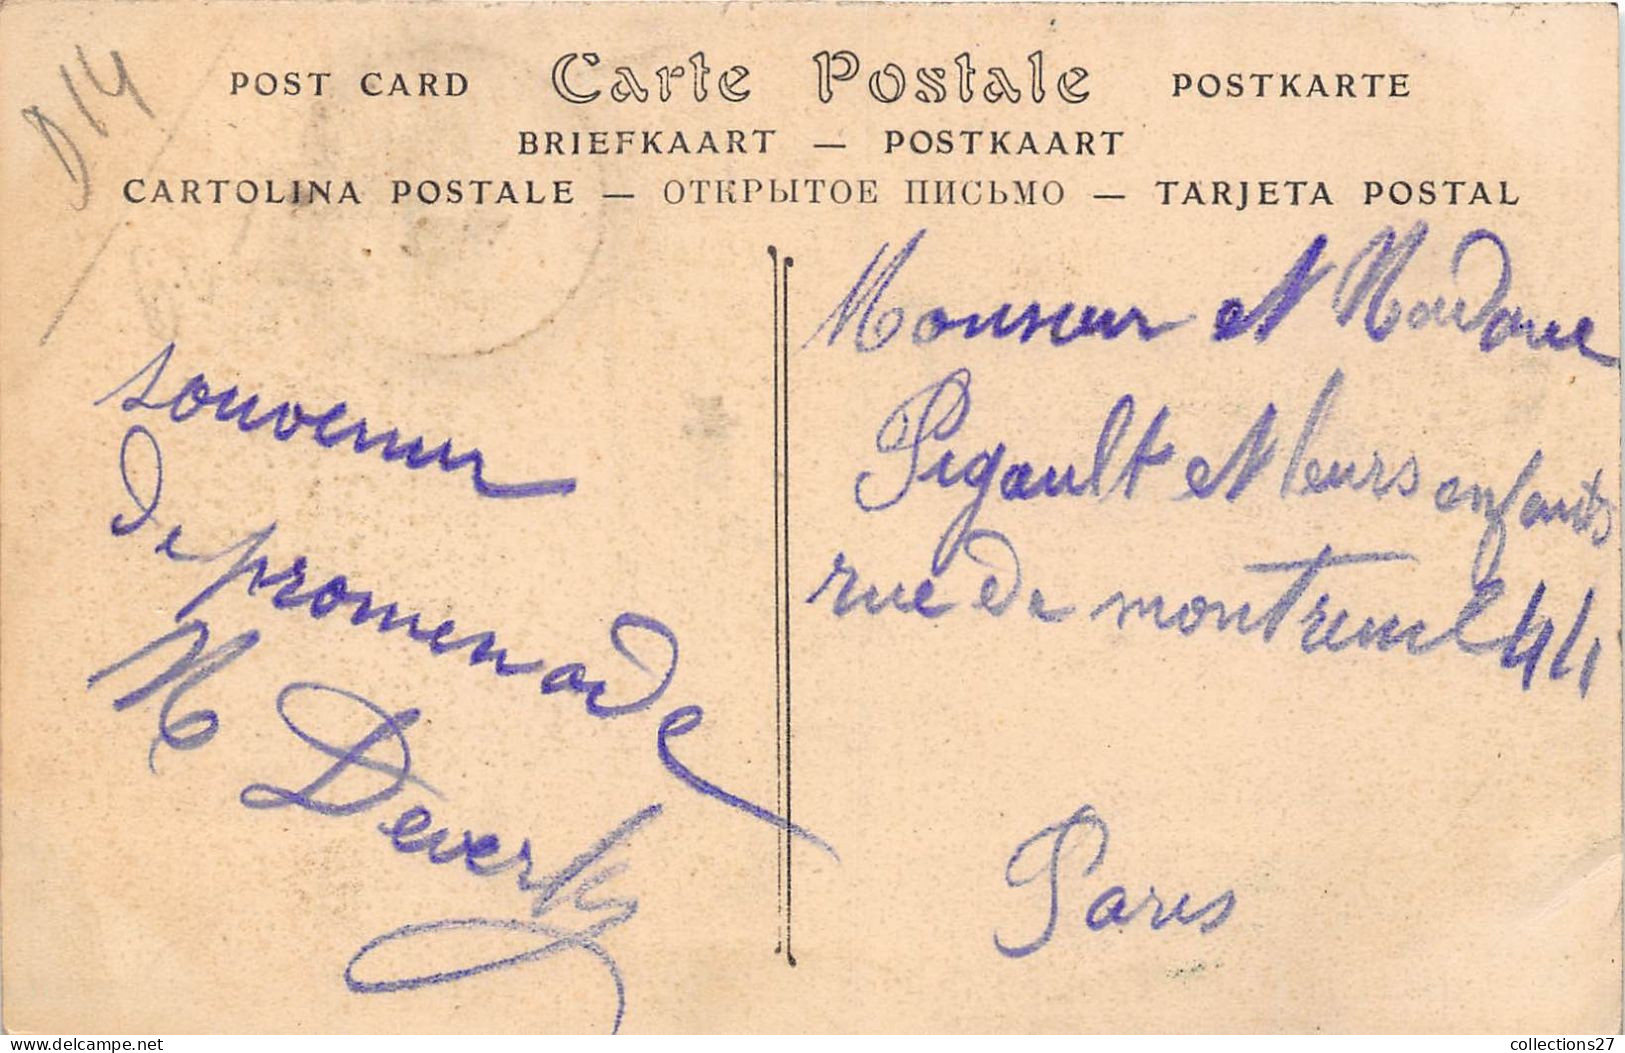 D14
POST CARD Carte Postale POSTKARTE
BRIEFKAART — POSTKAART
CARTOLINA POSTALE — ОТКРЫТОЕ ПИСЬМО — TARJETA POSTAL
souvenir
de promenade
M
Monsieur et Madame
Pigault et leurs enfants
rue de montreuil 44
Paris
collections27